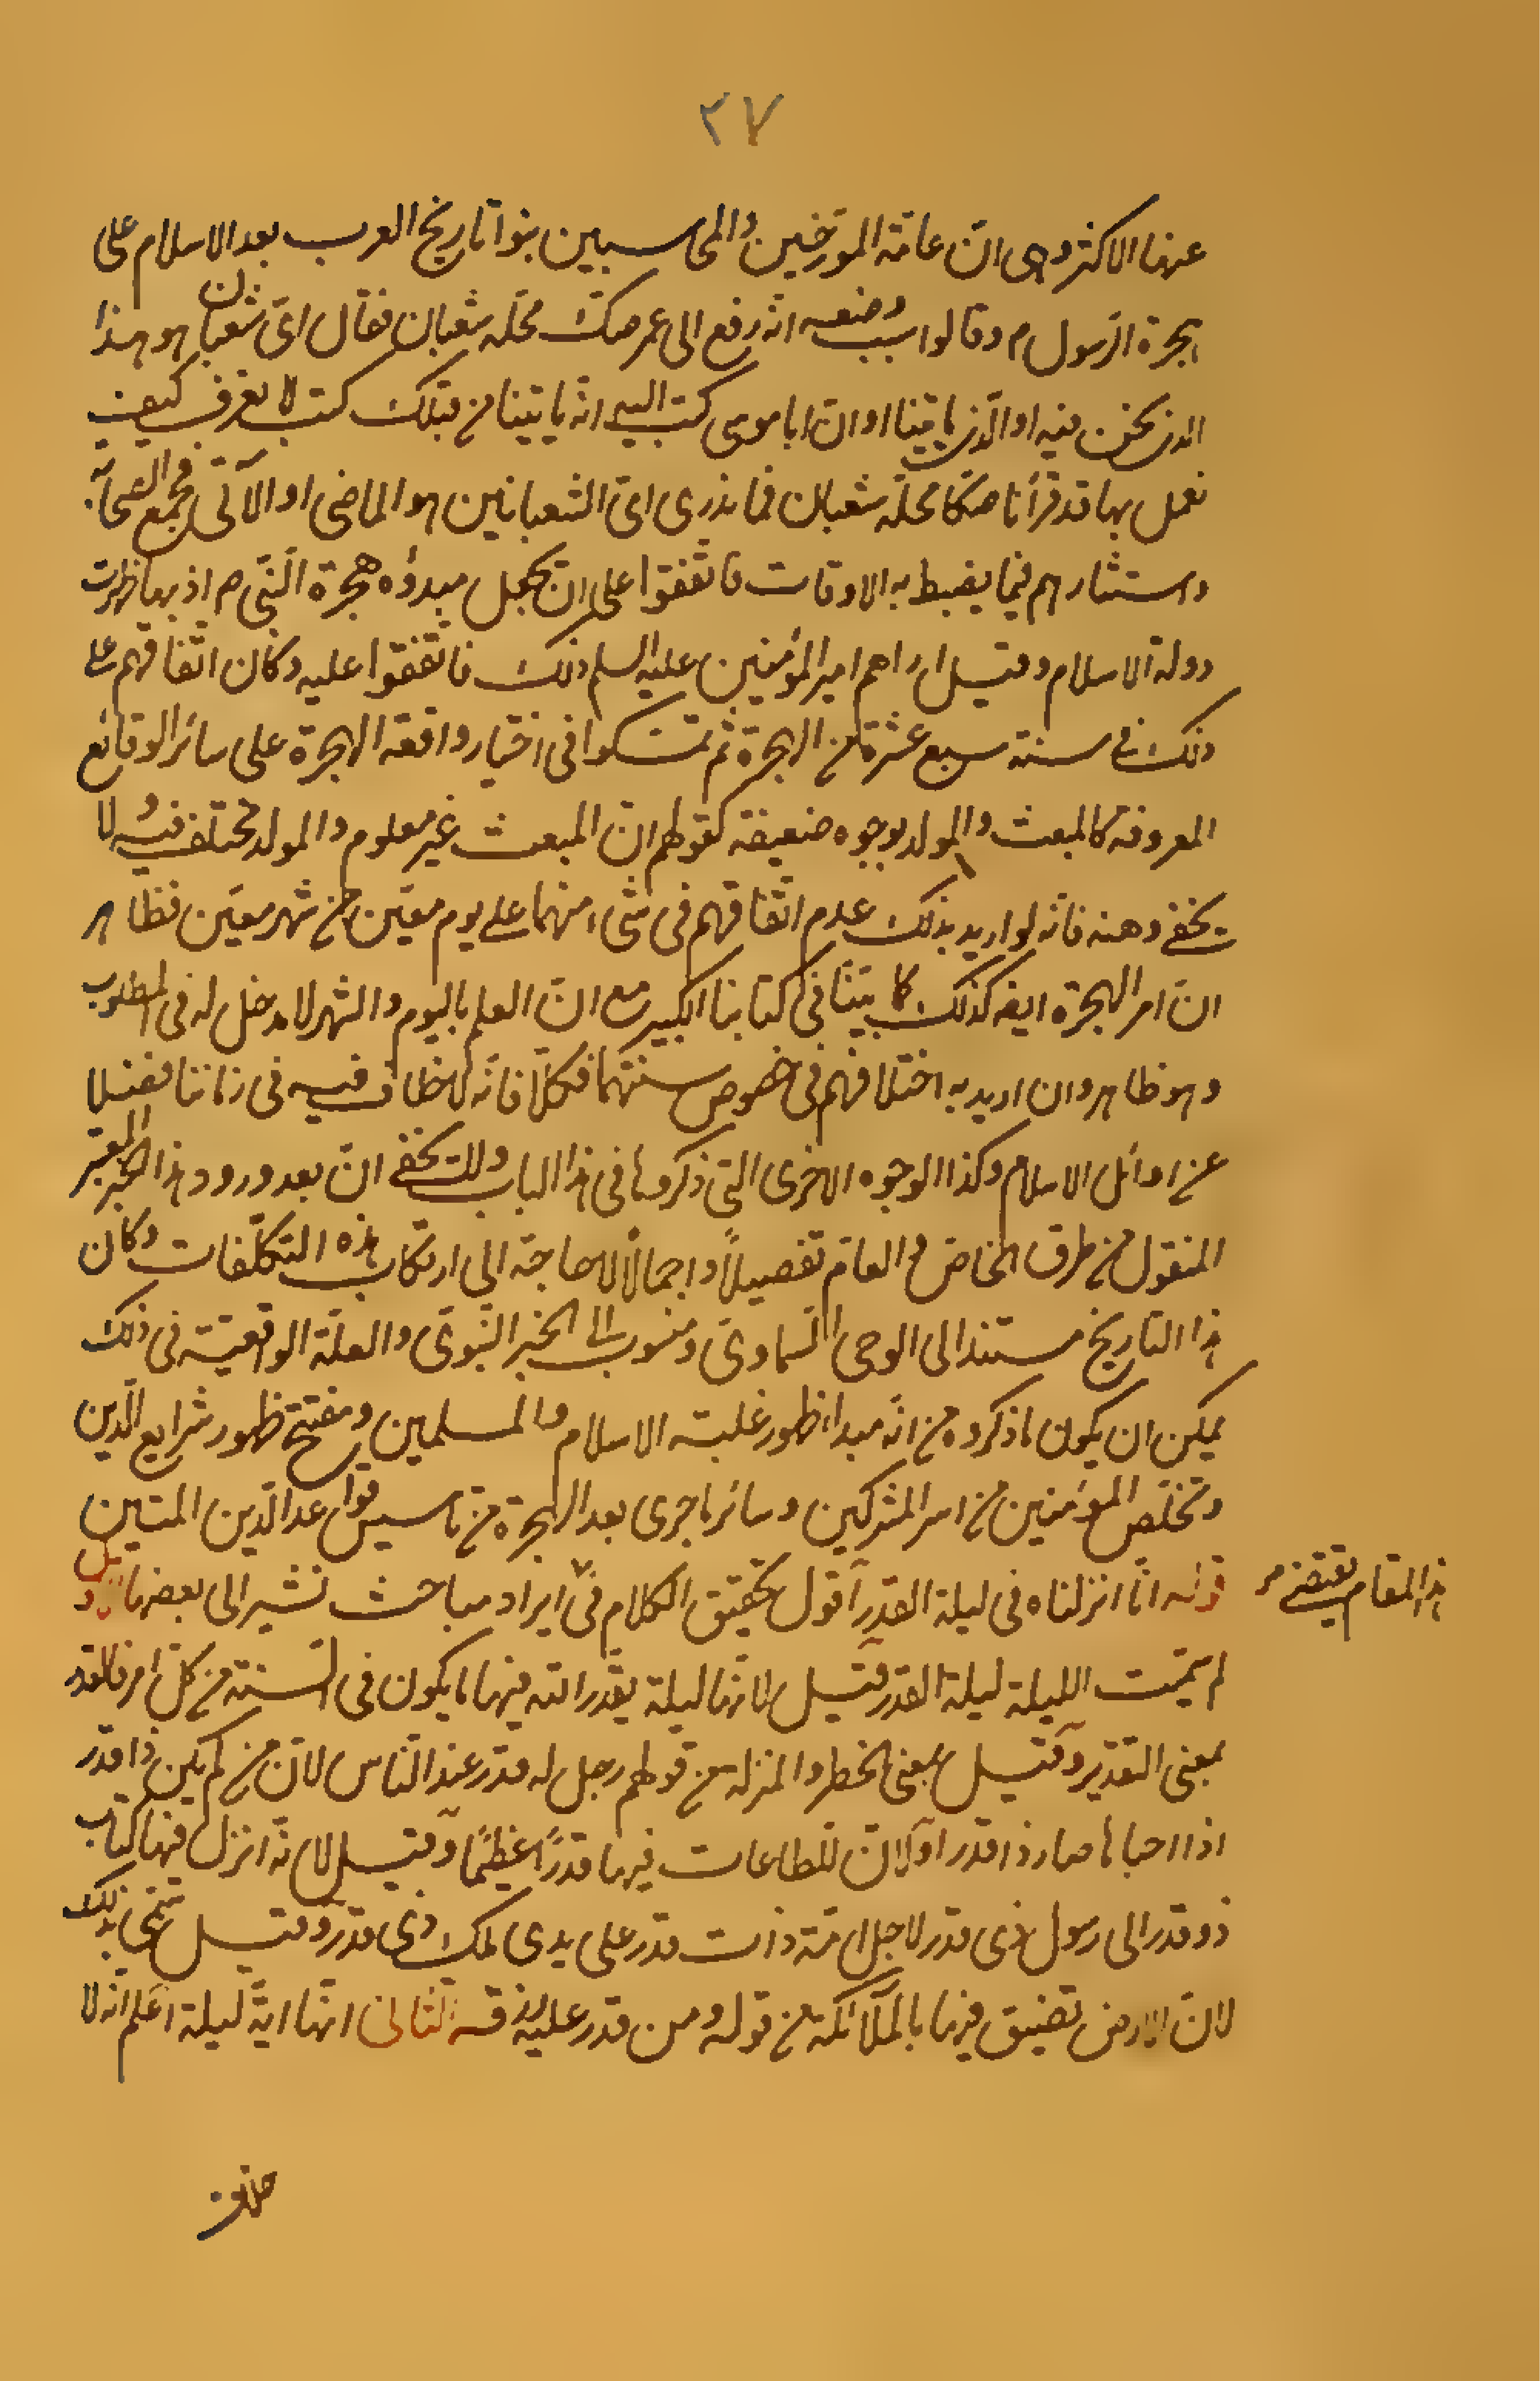 ٢٧
عنها الاكثر وهى انّ عامّة المورّخين والمحاسبين بنوا تاريخ العرب بعد الاسلام على
هجرة الرّسول ص وقالوا سبب وضعه انّه رفع الى عمر صكّ محلّه شعبان فقال اىّ شعبان هو هذا
الذى نحن فيه او الّذى ياتينا او انّ ابا موسى كتب اليه انّه ياتينا من قبلك كتب لا نعرف كيف
نعمل بها قد قرأنا صكّا محلّه شعبان فما ندرى اىّ الشعبانين هو الماضى او الآتى فجمع الصّحابة
واستشارهم فيما يضبط به الاوقات فاتّفقوا على ان يجعل مبدؤه هجرة النّبى ص اذ بها ظهرت
دولة الاسلام وقيل اراهم امير المؤمنين عليه السلم ذلك فاتّفقوا عليه وكان اتّفاقهم على
ذلك فى سنة سبع عشرة من الهجرة ثم تمسّكوا فى اختيار واقعة الهجرة على سائر الوقائع
المعروفة كالمبعث والمولد بوجوه ضعيفة كقولهم انّ المبعث غير معلوم والمولد مختلف فيه ولا
يخفى وهنه فانّه لو اريد بذلك عدم اتّفاقهم فى شىء منهما على يوم معيّن من شهر معيّن فظاهر
انّ امر الهجرة ايضه كذلك كما بيّنّا فى كتابنا الكبير مع انّ العلم باليوم والشهر لا مدخل له فى المطلوب
وهو ظاهر وان اريد به اختلافهم فى خصوص سنتهما فكلّا فانّه لا خلاف فيه فى زماننا فضلا
عن اوائل الاسلام وكذا الوجوه الاخرى التى ذكروها فى هذا الباب ولا يخفى انّ بعد ورود هذا الخبر المعتبر
المنقول من طرق الخاصّ والعامّ تفصيلاً واجمالاً لا حاجة الى ارتكاب هذه التكلّفات وكان
هذا التاريخ مستندا الى الوحى السّماوىّ ومنسوب الى الخبر النّبوىّ والعلّة الواقعيّة فى ذلك
يمكن ان يكون ما ذكروه من انّه مبدا ظهور غلبة الاسلام والمسلمين ومفتتح ظهور شرايع الدّين
وتخلّص المؤمنين من اسر المشركين وسائر ما جرى بعد الهجرة من تاسيس قواعد الدّين المتين
قوله انّا انزلناه فى ليلة القدر اقول تحقيق الكلام فى ايراد مباحث نشير الى بعضها
هذا المقام يقتضى
لم سمّيت الليلة ليلة القدر قيل لانّها ليلة يقدّر الله فيها ما يكون فى السّنة من كلّ امر فالقدر
بمعنى التقدير وقيل بمعنى الخطر والمنزله من قولهم رجل له قدر عند النّاس لانّ من لم يكن ذا قدر
اذا احياها صار ذا قدر او لانّ للطاعات فيها قدرًا عظيمًا وقيل لانّه انزل فيها كتاب
ذو قدر الى رسول ذى قدر لاجل امّة ذات قدر على يدى ملك ذى قدر وقيل سمّى بذلك
لانّ الارض تضيق فيها بالملآئكة من قوله ومن قدر عليه رزقه الثّانى انّها ايّة ليلة اعلم انّه لا